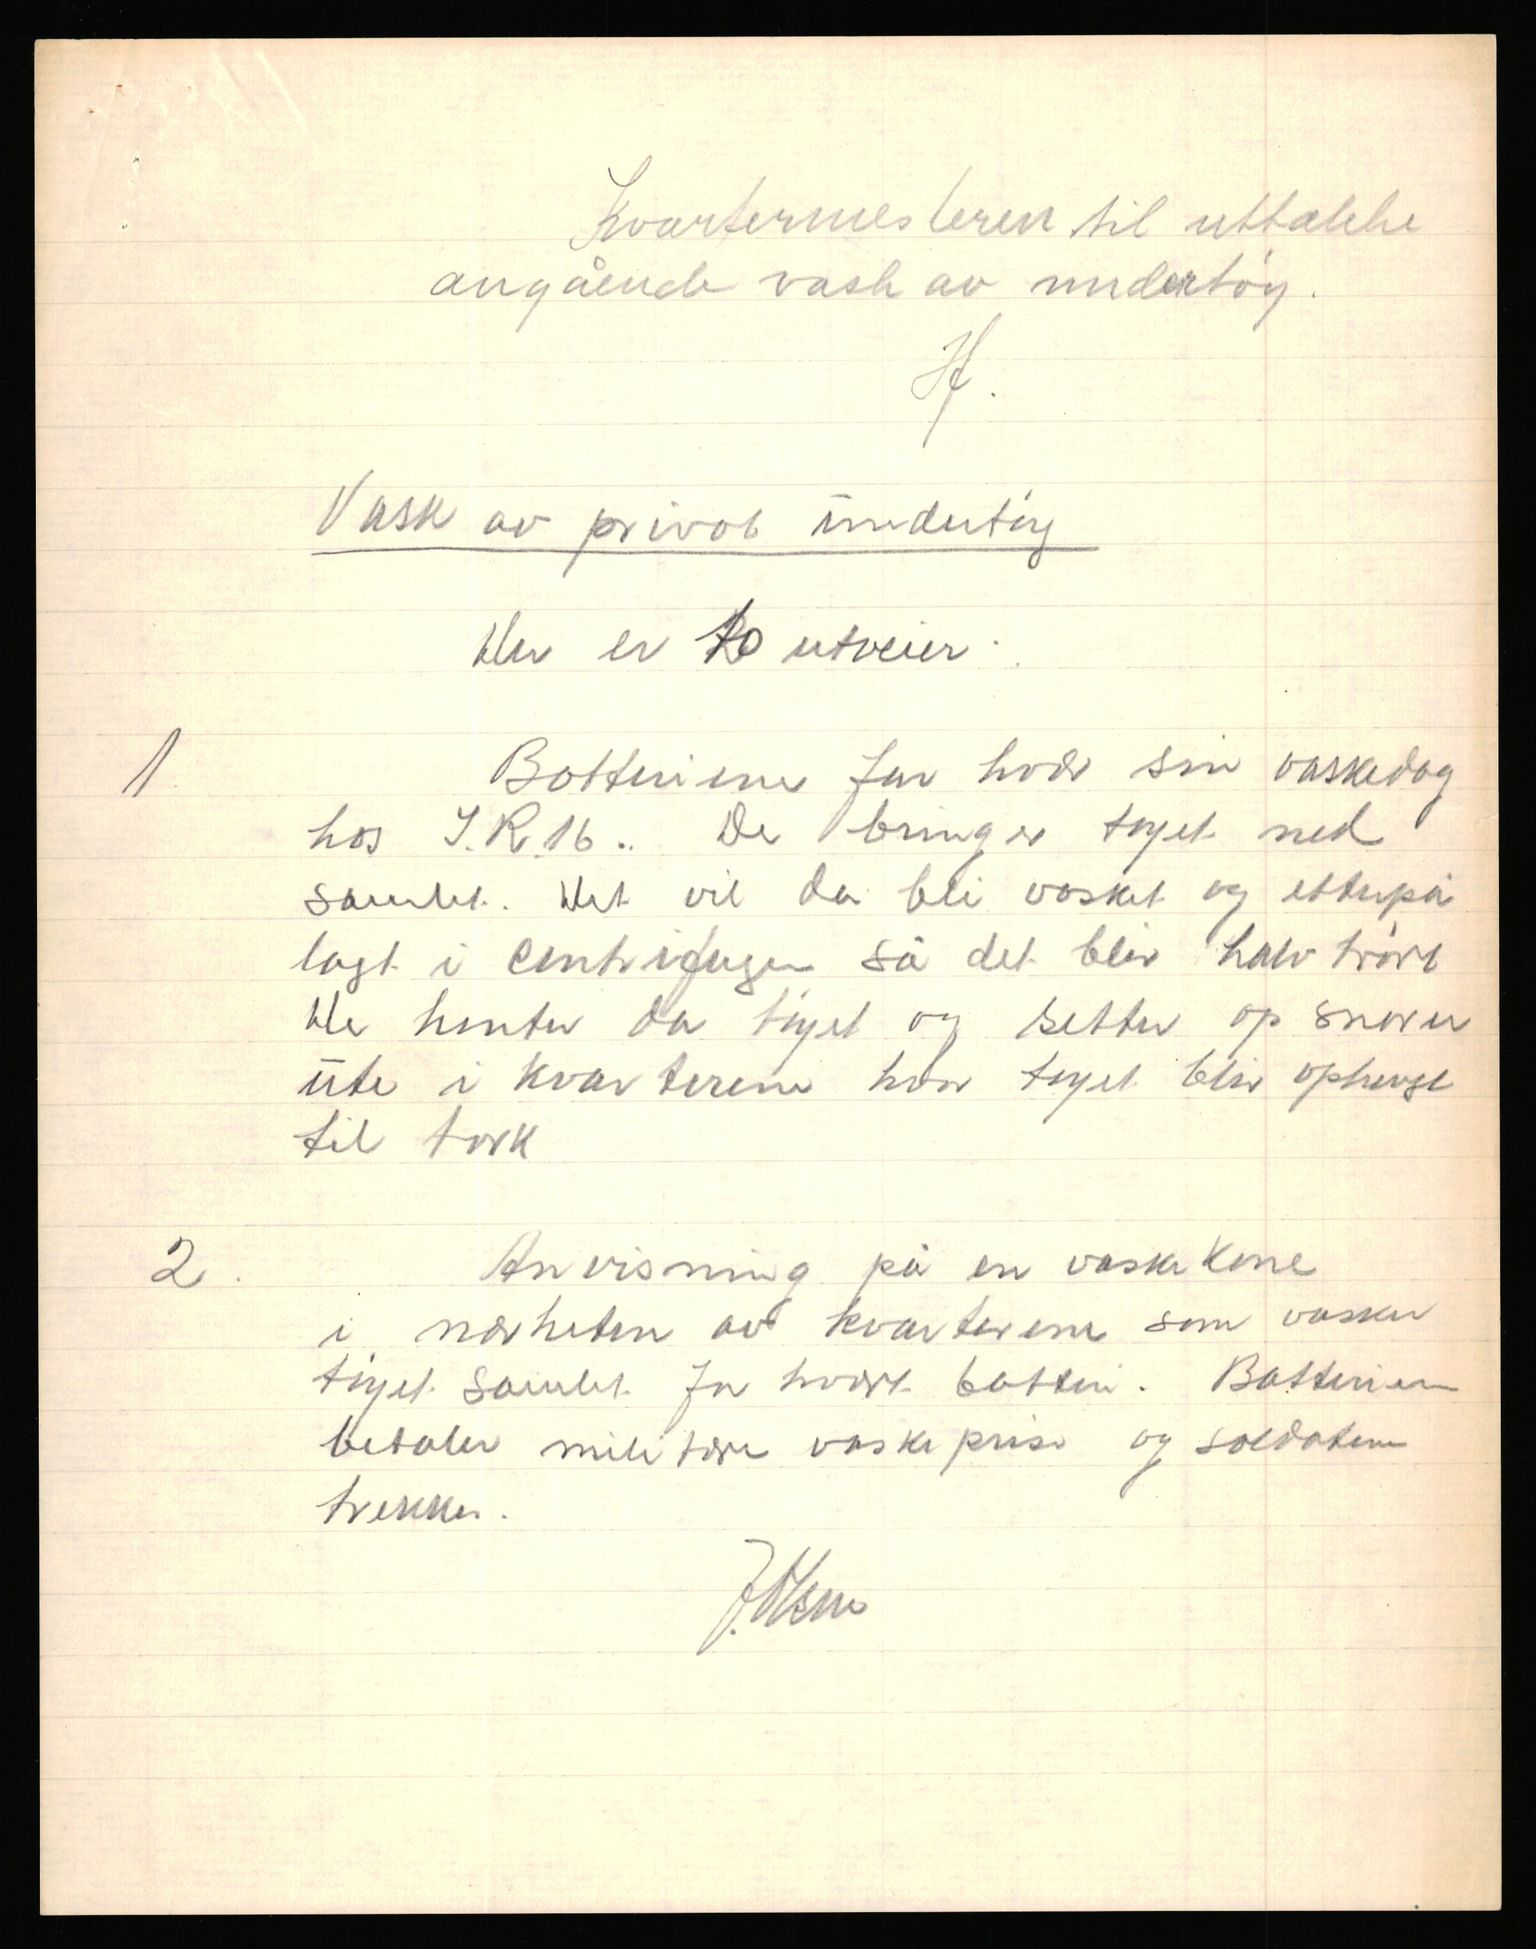 Kvartermesteren til uttalelse
angående vask av undertøy.
H.
Vask av privat undertøy
Der er to utveier.
1 Batteriene får hver sin vaskedag
hos I.R.16.. De bringer tøyet ned
samlet. Det vil da bli vasket og etterpå
lagt i centrifugen så det blir halvtørt
De henter da tøyet og setter op snorer
ute i kvarterene hvor tøyet blir ophengt
til tørk
2. Anvisning på en vaskekone
i nærheten av kvarterene som vasker
tøyet samlet for hvert batteri. Batteriene
betaler militære vaskepriser og soldatene
trekkes.
J. Olsen